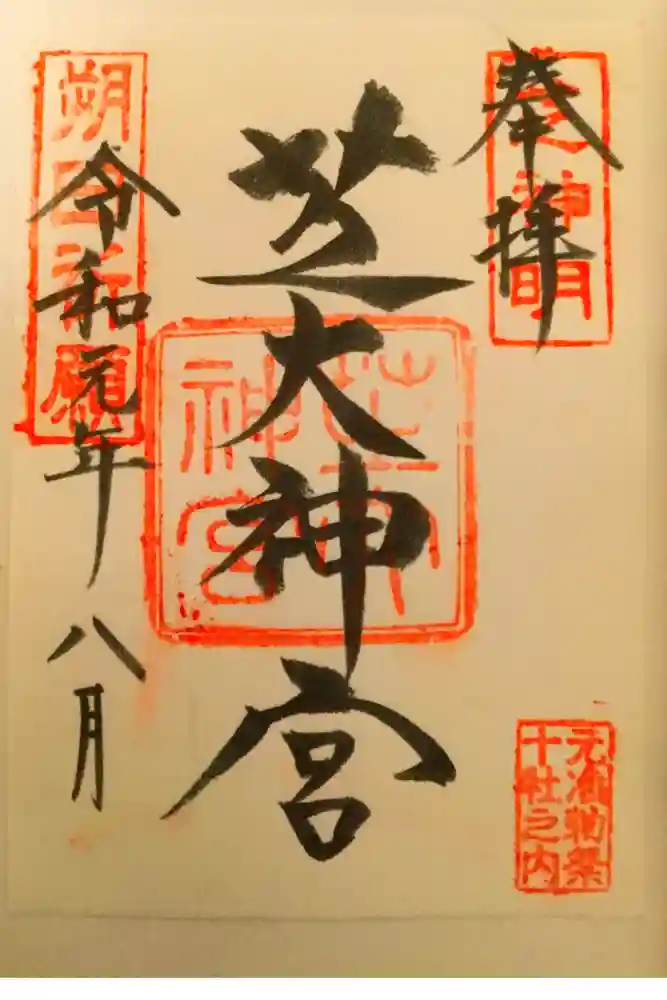 奉拝
芝神明
芝大神宮
芝大
神宮
令和元年
八月
朔日祈願
元准勅祭
十社之内